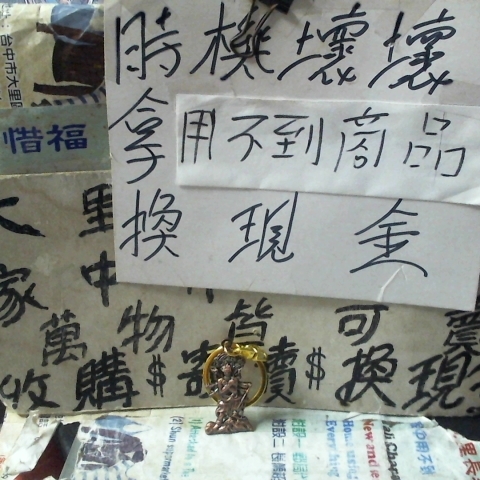 時機壞壞
拿用不到商品
換現金
台中市大里
惜福
大里
家中
萬物皆可賣
收購$寄賣$換現
New and le